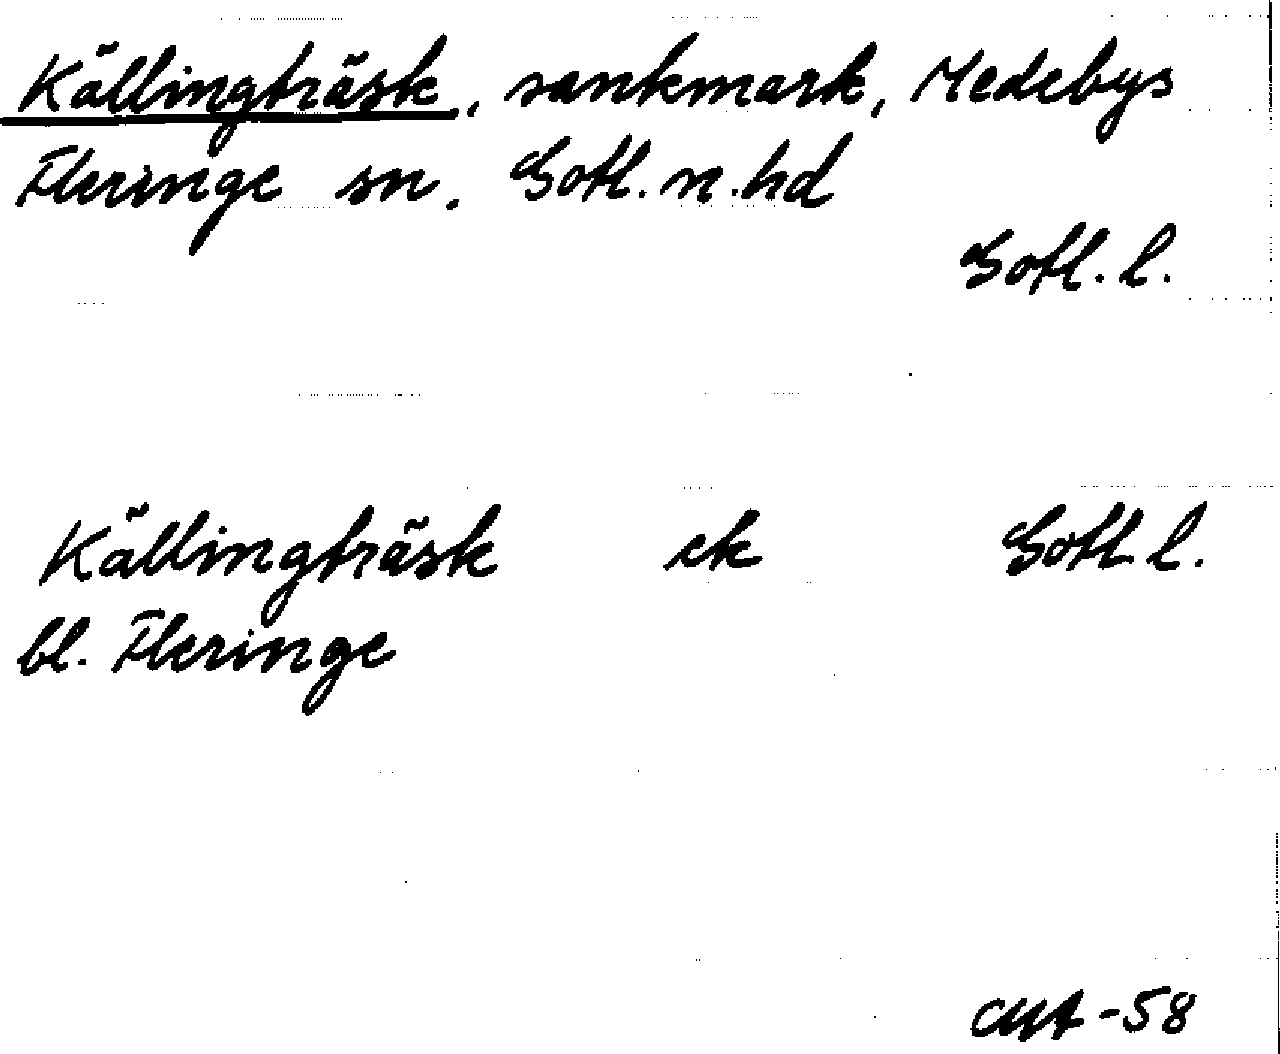 Källingträsk, sankmark, Medebys
Fleringe sn. Gotl. n. hd
Gotl. l.
Källingträsk ek Gotl. l.
bl. Fleringe
-58